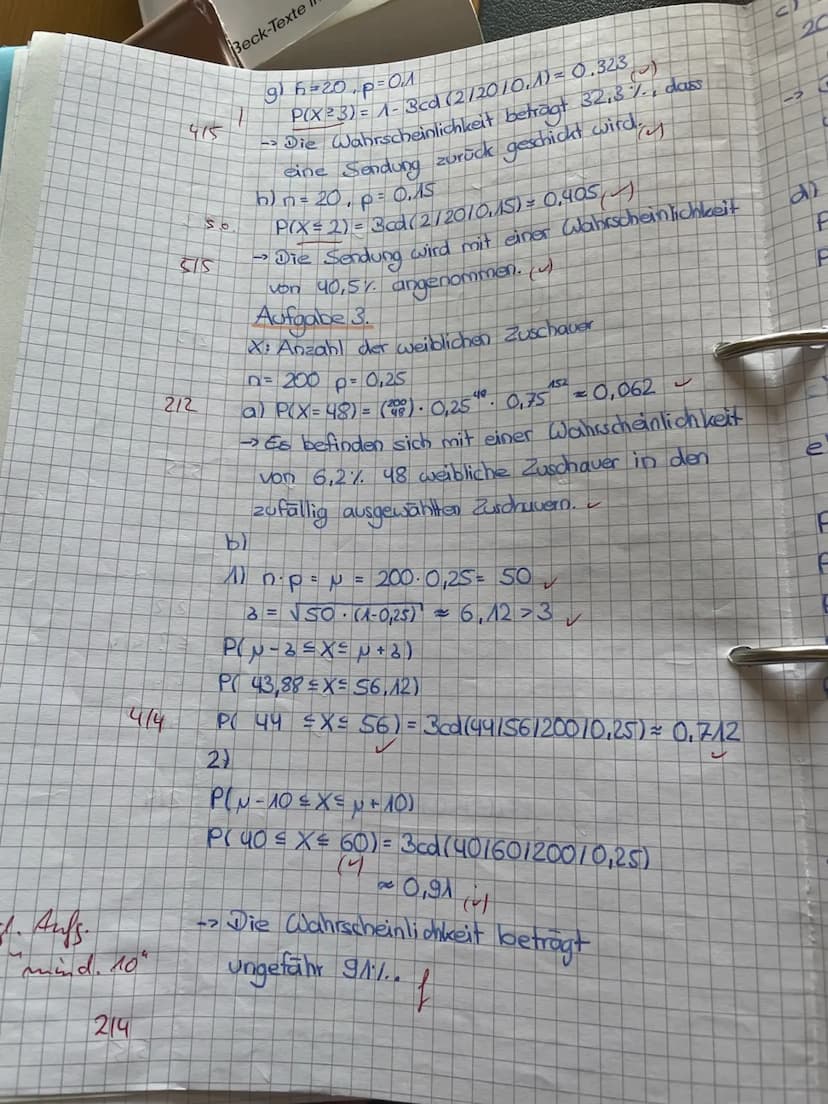 Beck-Texte
c)
g) n=20, p=0,1
P(X≥3) = 1 - Bcd(2/20/0,1) = 0,323 (✓)
4/5
→ Die Wahrscheinlichkeit beträgt 32,3%, dass
eine Sendung zurück geschickt wird. (✓)
h) n=20, p=0,15
P(X≤2) = Bcd(2/20/0,15) = 0,405 (✓)
s.o.
5/5
→ Die Sendung wird mit einer Wahrscheinlichkeit
von 40,5% angenommen. (✓)
Aufgabe 3.
X: Anzahl der weiblichen Zuschauer
n= 200 p= 0,25
2/2
a) P(X=48) = (200 48) · 0,25^48 · 0,75^152 ≈ 0,062 ✓
→ Es befinden sich mit einer Wahrscheinlichkeit
von 6,2% 48 weibliche Zuschauer in den
zufällig ausgewählten Zuschauern. ✓
b)
1) n·p = μ = 200·0,25 = 50 ✓
3 = √50·(1-0,25) ≈ 6,12 > 3 ✓
P(μ-3 ≤ X ≤ μ+3)
P(43,88 ≤ X ≤ 56,12)
4/4
P(44 ≤ X ≤ 56) = Bcd(44/56/200/0,25) ≈ 0,712
✓ ✓
2)
P(μ-10 ≤ X ≤ μ+10)
P(40 ≤ X ≤ 60) = Bcd(40/60/200/0,25)
(✓)
≈ 0,91 (✓)
Aufg.
"mind. 10"
→ Die Wahrscheinlichkeit beträgt
ungefähr 91%. f
2/4
d)
e)